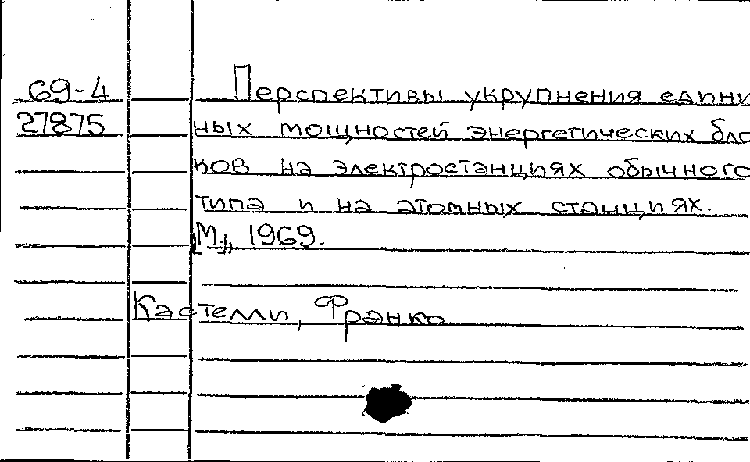 69-4 Перспективы укрупнения едини
27875 ных мощностей энергетических бло
ков на электростанциях обычного
типа и на атомных станциях.
[М.], 1969.
Кастелли, Франко